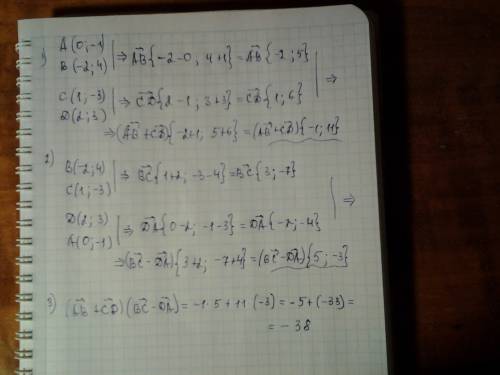 1) A(0;-1)
B(-2;4) ⇒ AB{-2-0; 4+1}=AB{-2;5}
⇒
C(1;-3)
D(2;3) ⇒ CD{2-1; 3+3}=CD{1;6}
⇒(AB+CD){-2+1, 5+6}=(AB+CD){-1;11}
2) B(-2;4)
C(1;-3) ⇒ BC{1+2; -3-4}=BC{3;-7}
⇒
D(2;3)
A(0;-1) ⇒ DA{0-2; -1-3}=DA{-2;-4}
⇒(BC-DA){3+2; -7+4}=(BC-DA){5;-3}
3) (AB+CD)(BC-DA)=-1·5+11(-3)=-5+(-33)=
=-38